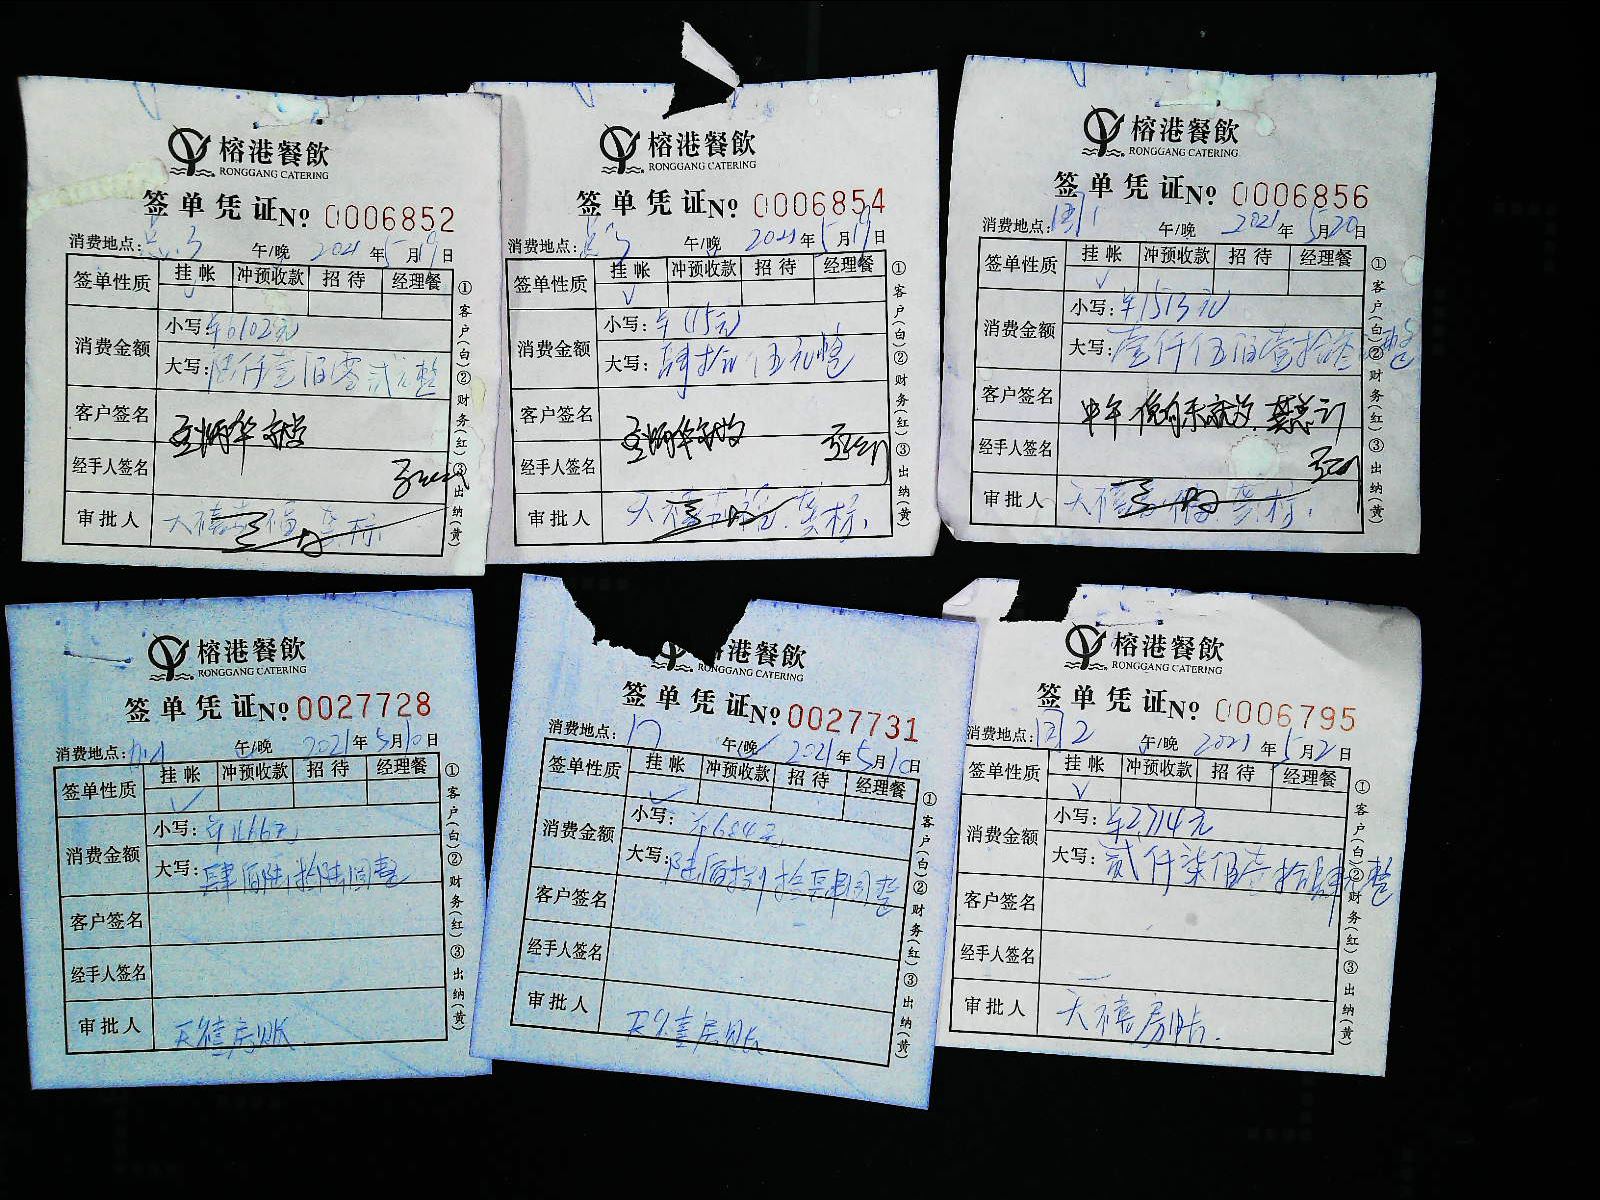 榕港餐飲
RONGGANG CATERING
签单凭证№ 0006852
消费地点: 午/晚 2021年5月19日
签单性质 挂帐 冲预收款 招待 经理餐
消费金额
小写: ¥6102元
大写: 陆仟壹佰零贰元整
客户签名
经手人签名
审批人 天禧
①客户(白)②财务(红)③出纳(黄)
榕港餐飲
RONGGANG CATERING
签单凭证№ 0006854
消费地点: 午/晚 2021年5月19日
签单性质 挂帐 冲预收款 招待 经理餐
消费金额
小写: ¥
大写: 肆拾伍元整
客户签名
经手人签名
审批人 天禧
①客户(白)②财务(红)③出纳(黄)
榕港餐飲
RONGGANG CATERING
签单凭证№ 0006856
消费地点: 午/晚 2021年5月20日
签单性质 挂帐 冲预收款 招待 经理餐
消费金额
小写: ¥1513元
大写: 壹仟伍佰壹拾叁元整
客户签名 中午
经手人签名
审批人 天禧
①客户(白)②财务(红)③出纳(黄)
榕港餐飲
RONGGANG CATERING
签单凭证№ 0027728
消费地点: 午/晚 2021年5月10日
签单性质 挂帐 冲预收款 招待 经理餐
消费金额
小写: ¥466元
大写: 肆佰陆拾陆圆整
客户签名
经手人签名
审批人 天禧房账
①客户(白)②财务(红)③出纳(黄)
港餐飲
RONGGANG CATERING
签单凭证№ 0027731
消费地点: 午/晚 2021年5月10日
签单性质 挂帐 冲预收款 招待 经理餐
消费金额
小写: ¥684元
大写: 陆佰捌拾肆圆整
客户签名
经手人签名
审批人 天禧房账
①客户(白)②财务(红)③出纳(黄)
榕港餐飲
RONGGANG CATERING
签单凭证№ 0006795
消费地点: 午/晚 2021年5月2日
签单性质 挂帐 冲预收款 招待 经理餐
消费金额
小写: ¥2714元
大写: 贰仟柒佰壹拾肆元整
客户签名
经手人签名
审批人 天禧房帐.
①客户(白)②财务(红)③出纳(黄)